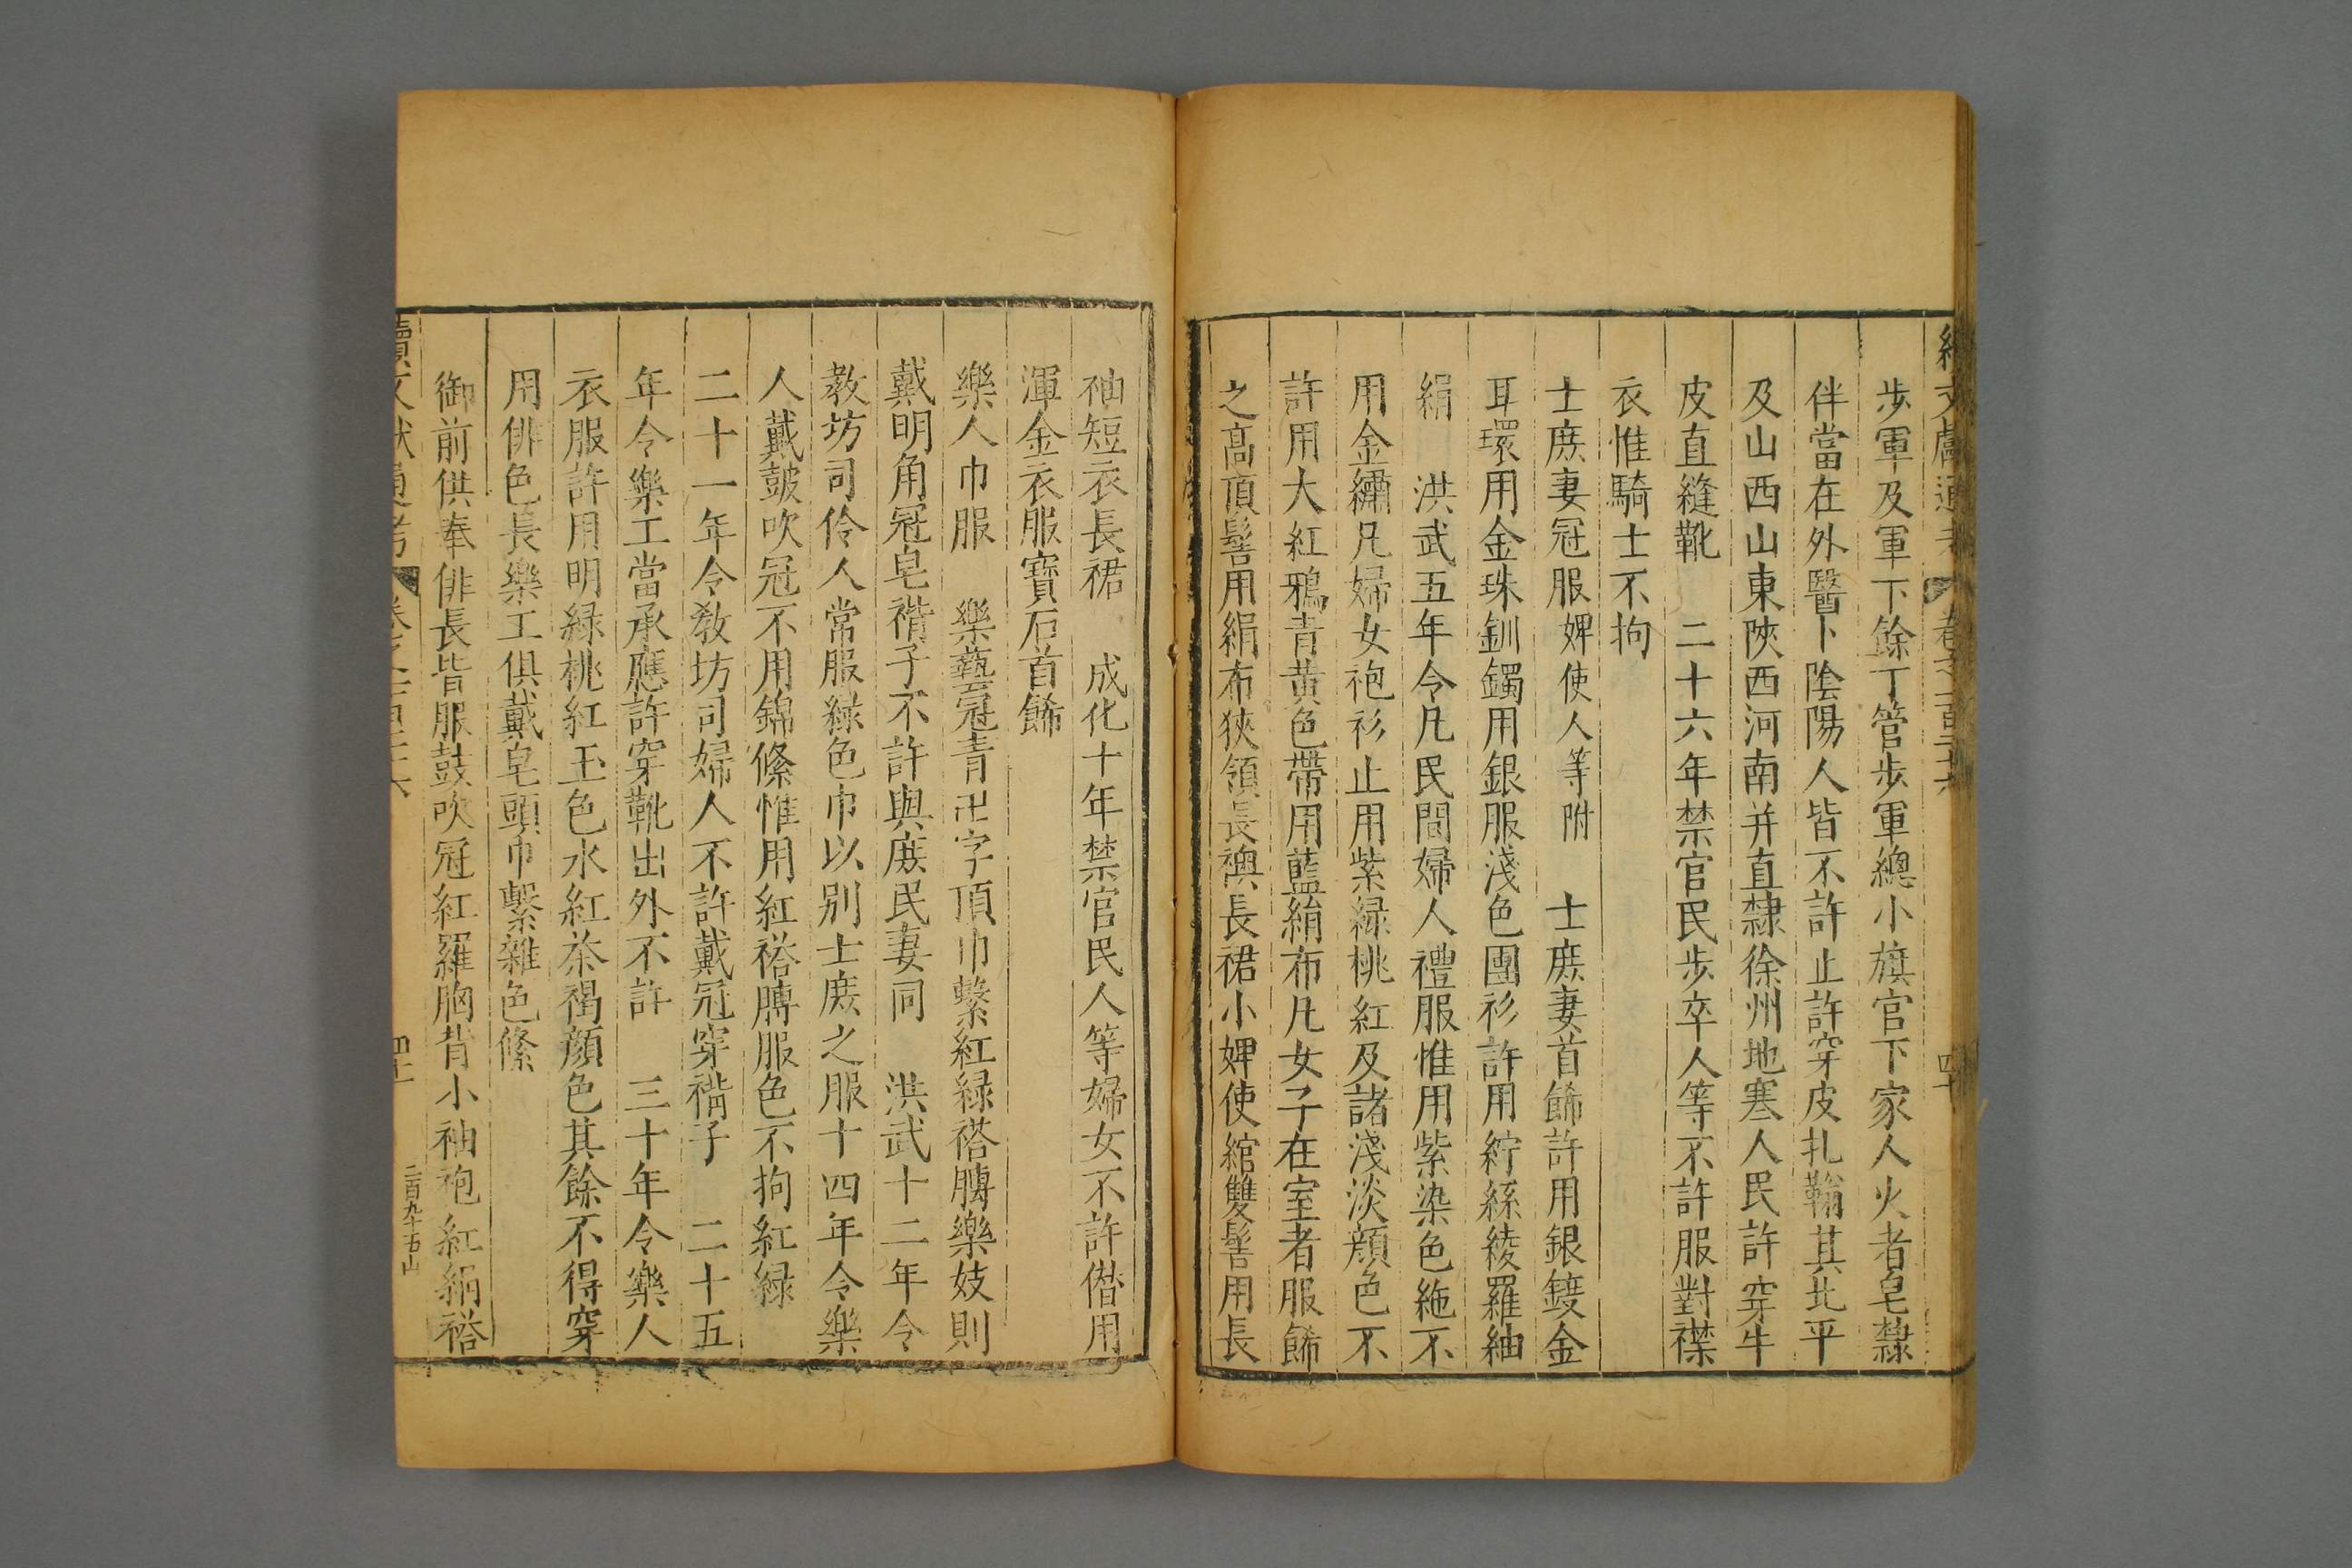 步軍及軍下餘丁管步軍總小旗官下家人火者皂隸
伴當在外醫卜陰陽人皆不許止許穿皮扎䩺其北平
及山西山東陝西河南并直隸徐州地寒人民許穿牛
皮直縫靴　二十六年禁官民步卒人等不許服對襟
衣惟騎士不拘
士庶妻冠服婢使人等附　士庶妻首飾許用銀鍍金
耳環用金珠釧鐲用銀服淺色團衫許用紵絲綾羅紬
絹　洪武五年令凡民間婦人禮服惟用紫染色絁不
用金繡凡婦女袍衫止用紫綠桃紅及諸淺淡顔色不
許用大紅鴉青黃色帶用藍絹布凡女子在室者服飾
之高頂髻用絹布狹領長襖長裙小婢使綰雙髻用長
袖短衣長裙　成化十年禁官民人等婦女不許僭用
渾金衣服寶石首飾
樂人巾服　樂藝冠青卍字頂巾繫紅綠褡膊樂妓則
戴明角冠皂褙子不許與庶民妻同　洪武十二年令
教坊司伶人常服綠色巾以别士庶之服十四年令樂
人戴鼓吹冠不用錦絛惟用紅褡膊服色不拘紅綠
二十一年令教坊司婦人不許戴冠穿褙子　二十五
年令樂工當承應許穿靴出外不許　三十年令樂人
衣服許用明綠桃紅玉色水紅茶褐顔色其餘不得穿
用俳色長樂工俱戴皂頭巾繫雜色絛
御前供奉俳長皆服鼓吹冠紅羅胸背小袖袍紅絹褡
續文獻通考
二百九十五